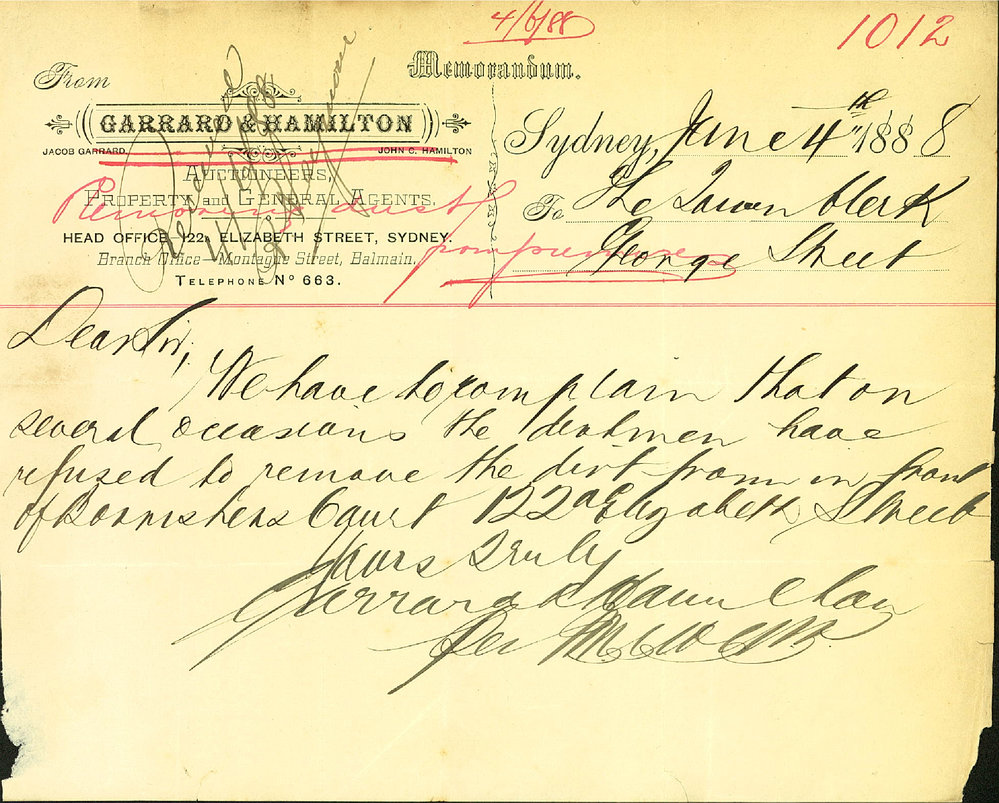 4/6/88
1012
From
Memorandum.
GARRARD & HAMILTON
JACOB GARRARD. JOHN C. HAMILTON
AUCTIONEERS,
PROPERTY AND GENERAL AGENTS.
HEAD OFFICE, 122, ELIZABETH STREET, SYDNEY.
Branch Office—Montague Street, Balmain.
TELEPHONE No 663.
Removing dust
Sydney, June 4th 1888
To The Town Clerk
George Street
Dear Sir,
We have to complain that on
several occasions the dirtmen have
refused to remove the dirt from in front
of Court 122a Elizabeth Street
Yours Truly
Garrard & Hamilton
Per